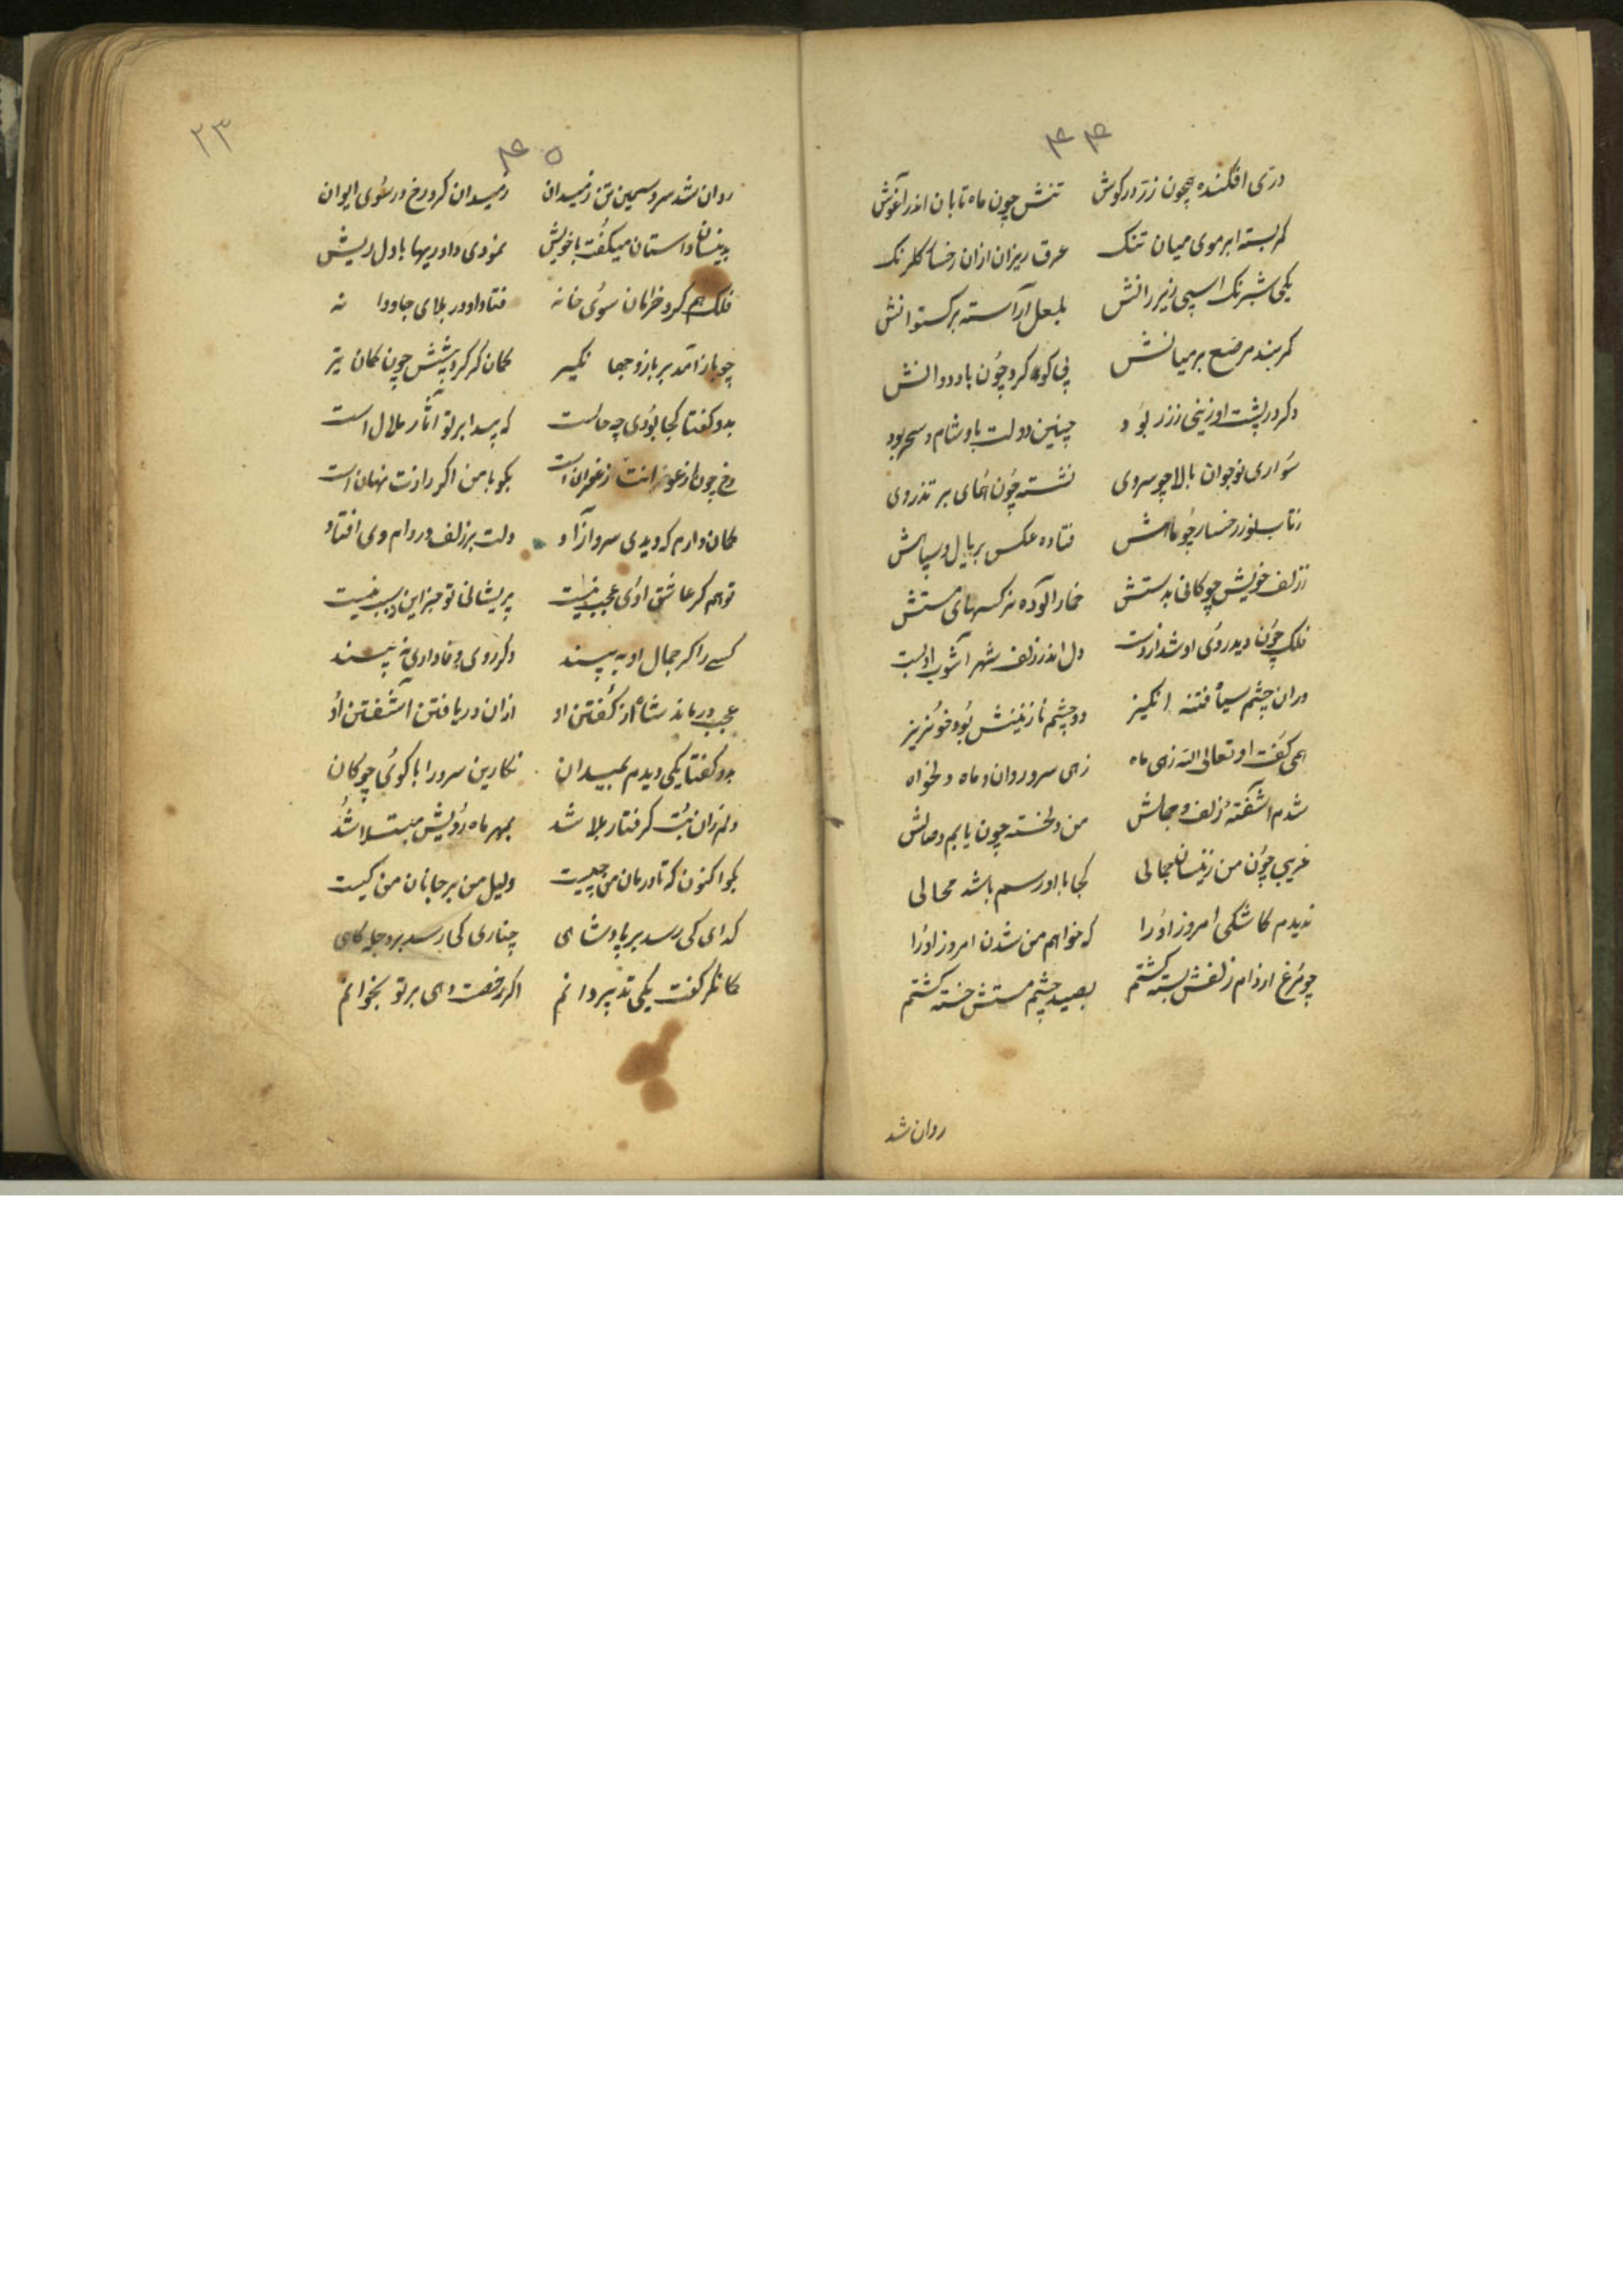 ۴۴
دری افکنده همچون زر در کوش تنش چون ماه تابان اندر آغوش
کمر بسته ابر موی میان تنک عرق ریزان ازان رخسار کلرنک
یکی شبرنک اسپی زیر رانش بلعل آراسته برکستوانش
کمربند مرصع بر میانش پی کوه کرد چون باد دوانش
دکر در پشت او زینی ز زر بود چنین دولت باو شام و سحر بود
سواری نوجوان بالا چو سروی نشسته چون همای بر تذروی
ز تاب نور رخسار چو ماهش فتاده عکس بر یال و سپاهش
ز زلف خویش چوکانی بدستش خمار آلوده نرکسهای مستش
فلک چون دید روی او شد از دست دل اندر زلف شهر آشوب او بست
دران چشم سیاه فتنه انکیز دو چشم نازنینش بود خونریز
همی کفت او تعالی الله زهی ماه زهی سرو روان و ماه دلخواه
شدم آشفته زلف و جمالش من دلخسته چون یابم وصالش
غریبی چون من زینسان بجمالی کجا با او رسم باشد محالی
ندیدم کاشکی امروز او را که خواهم من شدن امروز او را
چو مرغ از دام زلفش بسته کشتم بصید چشم مستش خسته کشتم
روان شد
۲۳
۴۵
روان شد سرو سیمین تن ز میدان ز میدان کرد رخ در سوی ایوان
بدینسان داستان میکفت با خویش نمودی داوریها با دل ریش
فلک هم کرد خرامان سوی خانه فتاد او در بلای جاودانه
چو باز آمد بر بازو جهانکیر کمان کر کرد پشتش چون کمان تیر
بدو کفتا کجا بودی چه حالست که پیدا بر تو آثار ملال است
رخ چون ارغوانت زعفران است بکو با من اکر رازت نهان است
کمان دارم که دیدی سرو آزاد دلت بر زلف در دام وی افتاد
تو هم کر عاشق اوئی عجب نیست پریشانی تو جز این سبب نیست
کسے را کر جمال او به پسند دکر روی وفاداری نه بیند
عجب درماند شاه از کفتن او ازان دریافتن آشفتن او
بدو کفتا یکی دیدم بمیدان نکارین سرو را با کوی چوکان
دلم زان بت کرفتار بلا شد بمهر ماه رویش مبتلا شد
بکو اکنون که تا درمان من چیست دلیل من بر جانان من کیست
کدای کی رسد بر پادشاهی چناری کی رسد بر وجه کاهی
کمانکر کفت یکی تدبیر دانم اکر رخصت دهی بر تو بخوانم